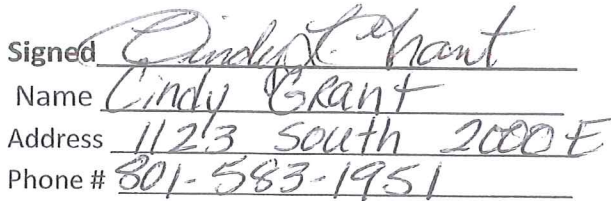 Signed Cindy L. Grant
Name Cindy Grant
Address 1123 South 2000 E
Phone # 801-583-1951